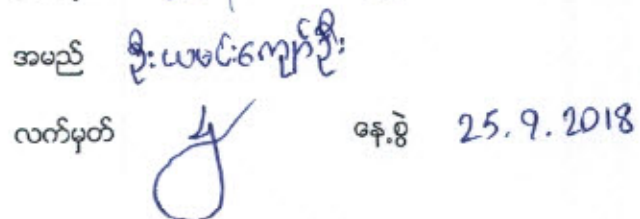 အမည် ဦးယမင်းကျော်ဦး
လက်မှတ် နေ့စွဲ 25.9.2018